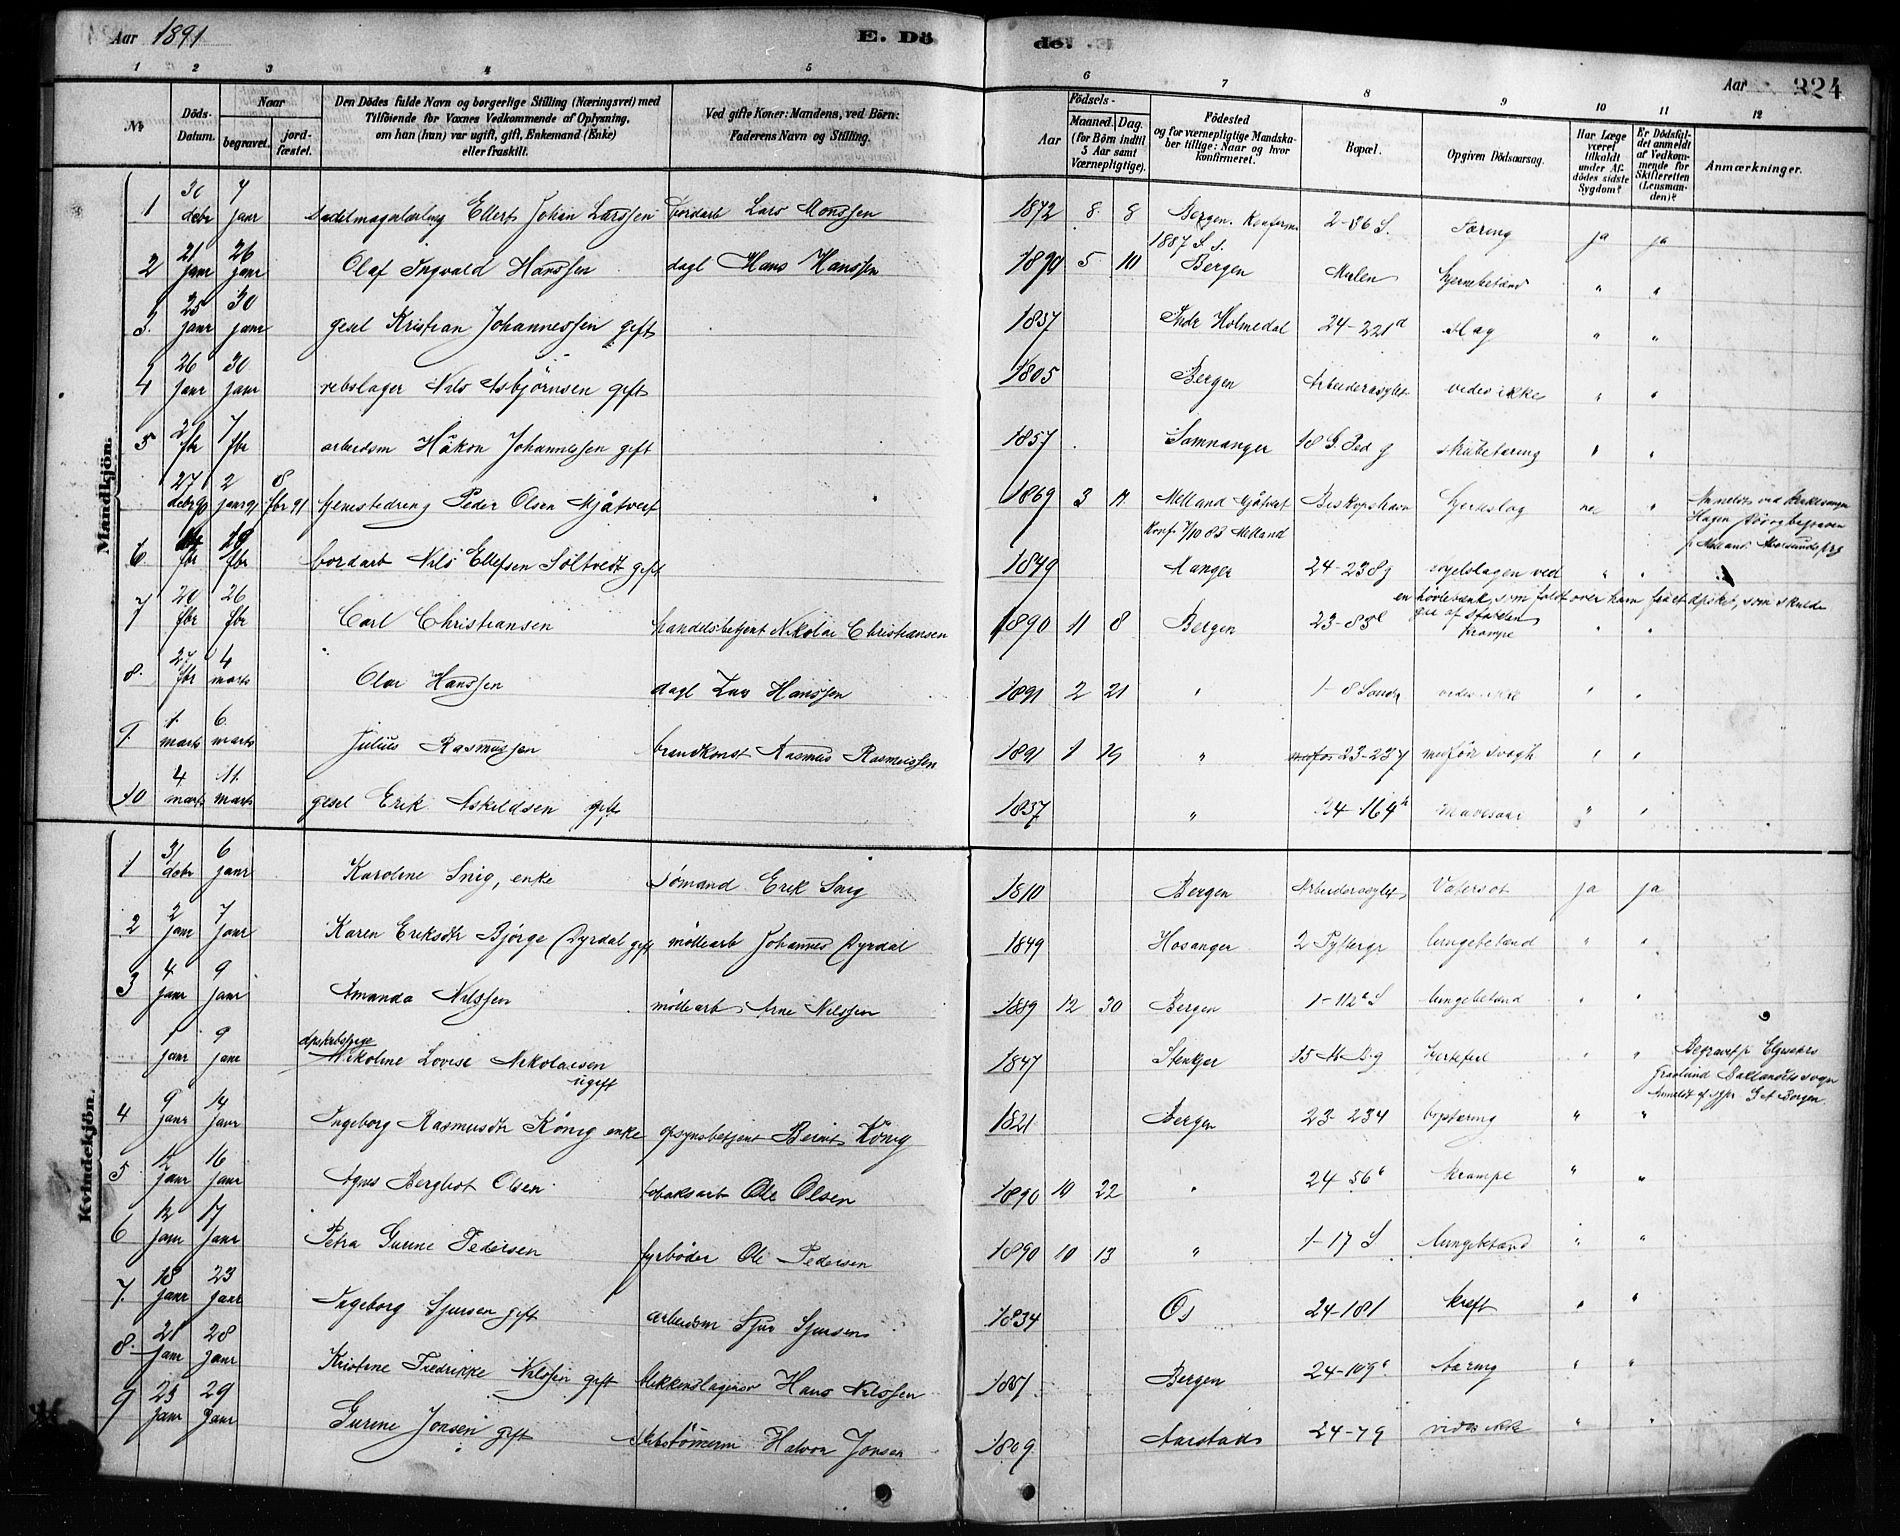 Aar 1891 E. Döde. Aar 324
1 2 3 4 5 6 7 8 9 10 11 12
№ Döds-Datum. Naar begravet. jordfæstet. Den Dödes fulde Navn og borgerlige Stilling (Næringsvei) med Tilföiende for Voxnes Vedkommende af Oplysning, om han (hun) var ugift, gift, Enkemand (Enke) eller fraskilt. Ved gifte Koner: Mandens, ved Börn: Faderens Navn og Stilling. Födsels- Aar Maaned. Dag. (for Börn indtil 5 Aar samt Værnepligtige). Födested og for værnepligtige Mandskaber tillige: Naar og hvor konfirmeret. Bopæl. Opgiven Dödsaarsag. Har Læge været tilkaldt under Afdödes sidste Sygdom? Er Dödsfaldet anmeldt af Vedkommende for Skifteretten (Lensmanden)? Anmærkninger.
Mandkjön.
1 30 debr 7 jaar Ellert Johan Larssen bordarb Lars Monssen 1872 8 8 Bergen. Konferm 1887 2-36 S. Tæring ja ja
2 21 janr 26 janr Olaf Ingvald Hanssen dagl Hans Hanssen 1890 5 10 Bergen Mulen hjernebetænd " "
3. 25 janr 30 janr gesel Kristian Johannessen gift 1837 Indr Holmedal 24-221d slag " "
4 26 janr 30 janr rebslager Nils Asbjörnsen gift 1805 Bergen Arbeiderasylet vides ikke " "
5 2 fbr 7 fbr arbeidsm Håkon Johannessen gift 1857 Samnanger strubetæring " "
27 debr 90 2 janr 91 8 fbr 91 tjenestedreng Peder Olsen Mjåtveit 1869 3 Melland Mjåtveit Konf 7/10 83 Melland Biskopshavn hjerteslag nei "
6. 18 fbr bordarb Nils Ellefsen Söltvedt gift 1849 Manger 24-238g ihjelslagen ved en hövlebænk, som faldt over ham fra et dæsket, som skulde " "
7 20 fbr 26 fbr Carl Christiansen handelsbetjent Nikolai Christiansen 1890 11 8 Bergen 23-83 Krampe " "
8. 27 fbr 4 marts Olai Hanssen dagl Lars Hanssen 1891 2 21 " 1-8 Sandv vides ikke " "
9. 1. marts 6. marts Julius Rasmussen brandkonst Rasmus Rasmussen 1891 1 19 " 23-237 medför svagh " "
10 4 marts 11. marts gesel Erik Askildsen gift 1837 " 24-164 Mavesaar " "
Kvindekjön.
1 31 debr 6 janr Karoline Snig, enke sömand Erik Snig 1810 Bergen Arbeiderasylet Vatersot ja ja
2 2 janr 7 janr Karen Eriksdtr Bjørge Dyrdal gift möllearb Johannes Dyrdal 1849 Hosanger 2 Pyttergr lungebetænd " "
3 4 janr 9 janr Amanda Nilssen möllearb Arne Nilssen 1889 12 30 Bergen 1-112 S lungebetænd " "
1 janr 9 janr Nikoline Lovise Nikolaisen ugift 1847 Stenkjer hjertefeil " "
4 9 janr 14 janr Ingeborg Rasmusdtr König enke opsynsbetjent Bernt König 1821 Bergen 23-234 brysttæring " "
5 12 janr 16 janr Agnes Bergliot Olsen tobaksarb Ole Olsen 1890 10 22 " 24 56 krampe " "
6 12 janr 17 janr Petra Gurine Pedersen fyrböder Ole Pedersen 1890 10 13 " 1-17 S lungebetænd " "
7. 18 janr 23 janr Ingeborg Sjursen gift arbeidsm Sjur Sjursen 1834 Os 24-181 kreft " "
8. 21 janr 28 janr Kristine Fredrikke Nilssen gift blikkenslagersv Hans Nilssen Bergen 24-109 tæring " "
9 23 janr 29 janr Gurine Jonsen gift skibstömerm Halvor Jonsen 1809 Aarstad 24-79 vides ikke " "